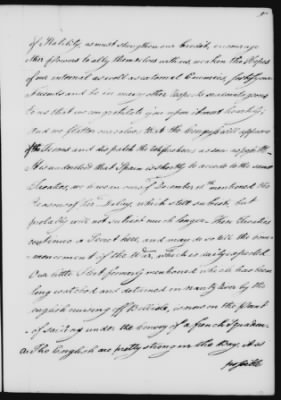 of Stability, as must strengthen our Credit, encourage
other powers to ally themselves with us, weaken the Hopes
of our internal as well as external Enemies, fortify our
Friends and be in many other respects so advantageous
to us that we congratulate you upon it most heartily,
and we flatter ourselves that the Congress will approve
of the Terms and dispatch the ratifications as soon as possible.
It is understood that Spain is shortly to accede to the same
Treaties, we in ours of December 18th mentioned the
Reasons of her Delay, which still subsist, but
probably will not subsist much longer. These Treaties
continue a Secret here, and may do so till the com-
mencement of the War, which is daily expected.
Our little Fleet formerly mentioned which has been
long watched and detained in Nantz river by the
english cruising off Belleisle, is now on the Point
of sailing under the Convoy of a french Squadron
As the English are pretty strong in the Bay, it is
possible